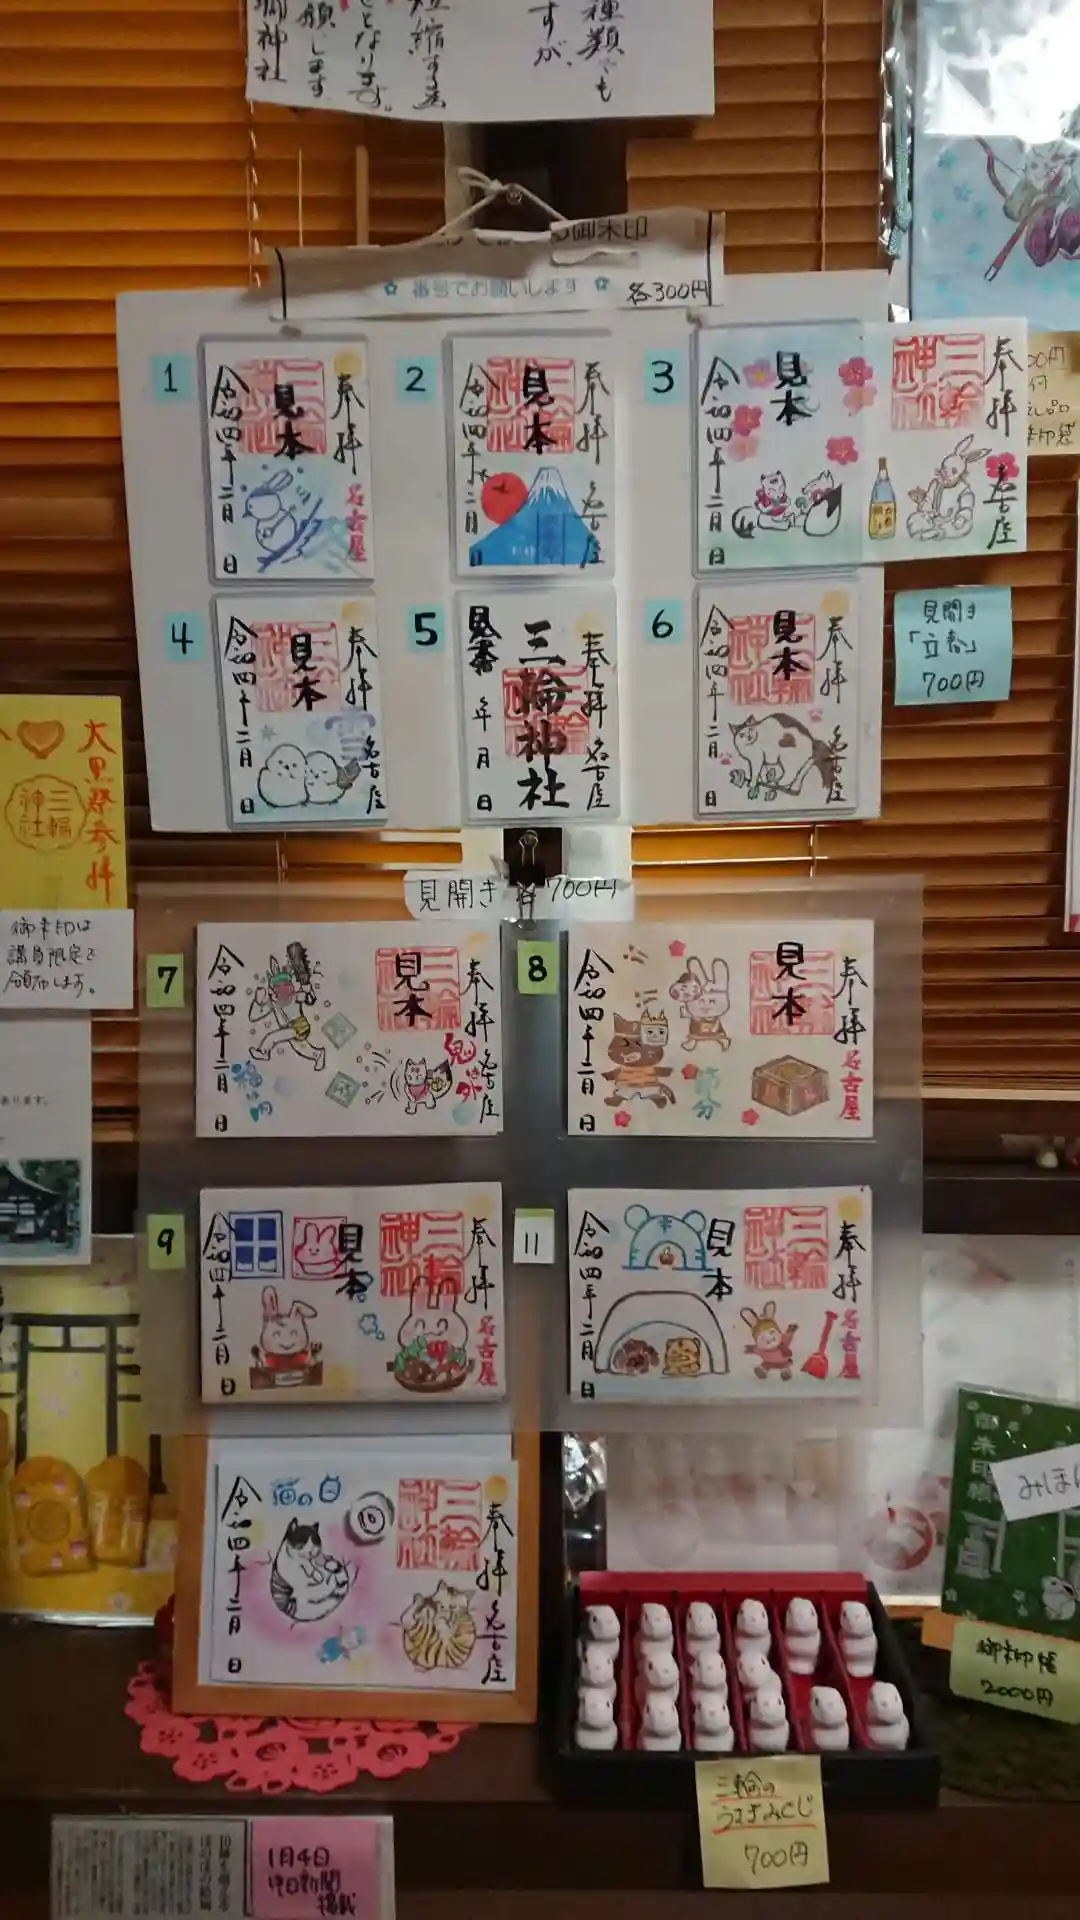 種類でも
すが、
短縮する
となります。
願します。
御朱印
番号でお願いします 各300円
1
奉拝
三輪神社
見本
令和四年二月 日
名古屋
2
奉拝
三輪神社
見本
令和四年二月 日
名古屋
3
奉拝
三輪神社
見本
令和四年二月 日
名古屋
見開き
「立春」
700円
4
奉拝
三輪神社
見本
令和四年二月 日
名古屋
5
奉拝
三輪神社
見本
年 月 日
名古屋
6
奉拝
三輪神社
見本
令和四年二月 日
名古屋
大黒祭参拝
三輪神社
御朱印は
講員限定で
領布します。
あります。
見開き 各700円
7
奉拝
三輪神社
見本
鬼は外
福は内
令和四年二月 日
名古屋
8
奉拝
三輪神社
見本
節分
令和四年二月 日
名古屋
9
奉拝
三輪神社
見本
令和四年二月 日
名古屋
11
奉拝
三輪神社
見本
令和四年二月 日
名古屋
猫の日
10
奉拝
三輪神社
令和四年二月 日
名古屋
御朱印帳
みほ
御朱印帳
2000円
三輪の
うさぎみくじ
700円
1月4日
中日新聞
掲載